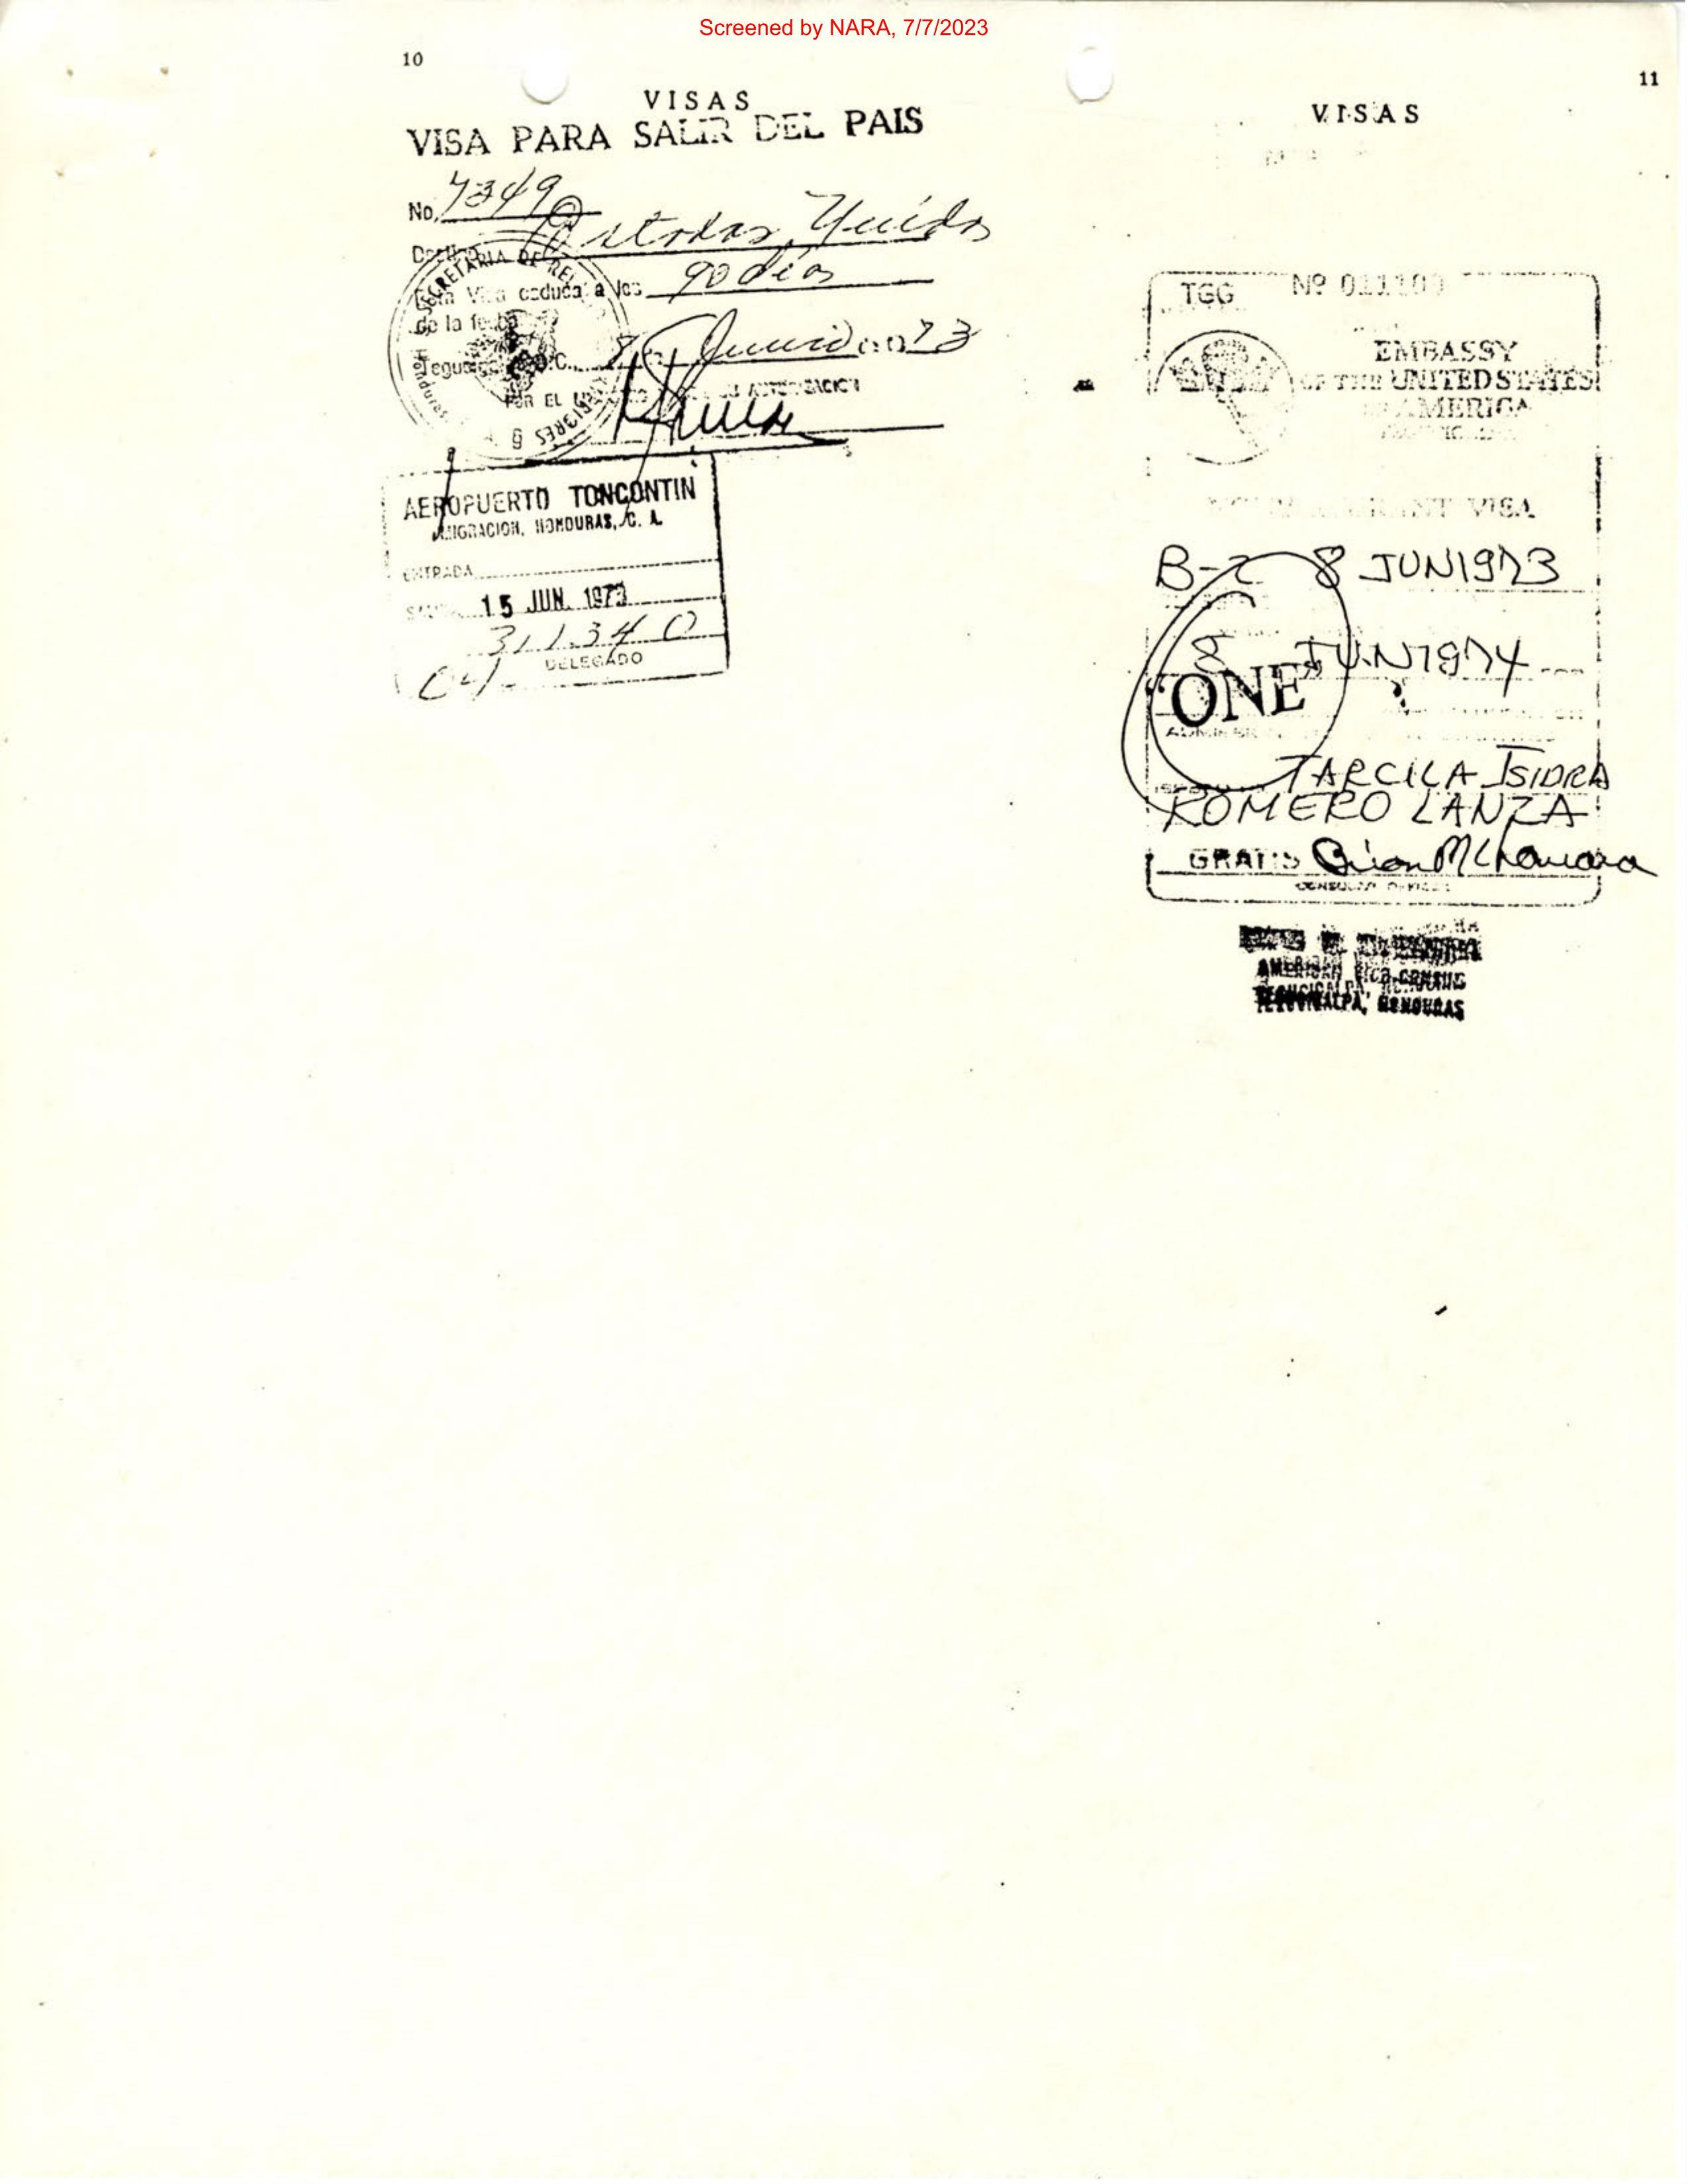 Screened by NARA, 7/7/2023
10
VISAS
VISA PARA SALIR DEL PAIS
No. 7349
Destino Estados Unidos
SECRETARIA DE REL
Esta Visa caduca a los 90 días
de la fecha
Honduras
8 Junio 73
POR EL
AUTORIZACION
AEROPUERTO TONCONTIN
MIGRACION, HONDURAS, C. A.
ENTRADA
15 JUN. 1973
311340
DELEGADO
11
VISAS
TGG Nº 011100
EMBASSY
OF THE UNITED STATES
OF AMERICA
VISA
B-2 8 JUN 1973
8 JUN 1974
"ONE"
TARCILA ISIDRA
ROMERO LANZA
GRATIS
CONSULAR OFFICER
AMERICAN VICE CONSUL
TEGUCIGALPA, HONDURAS